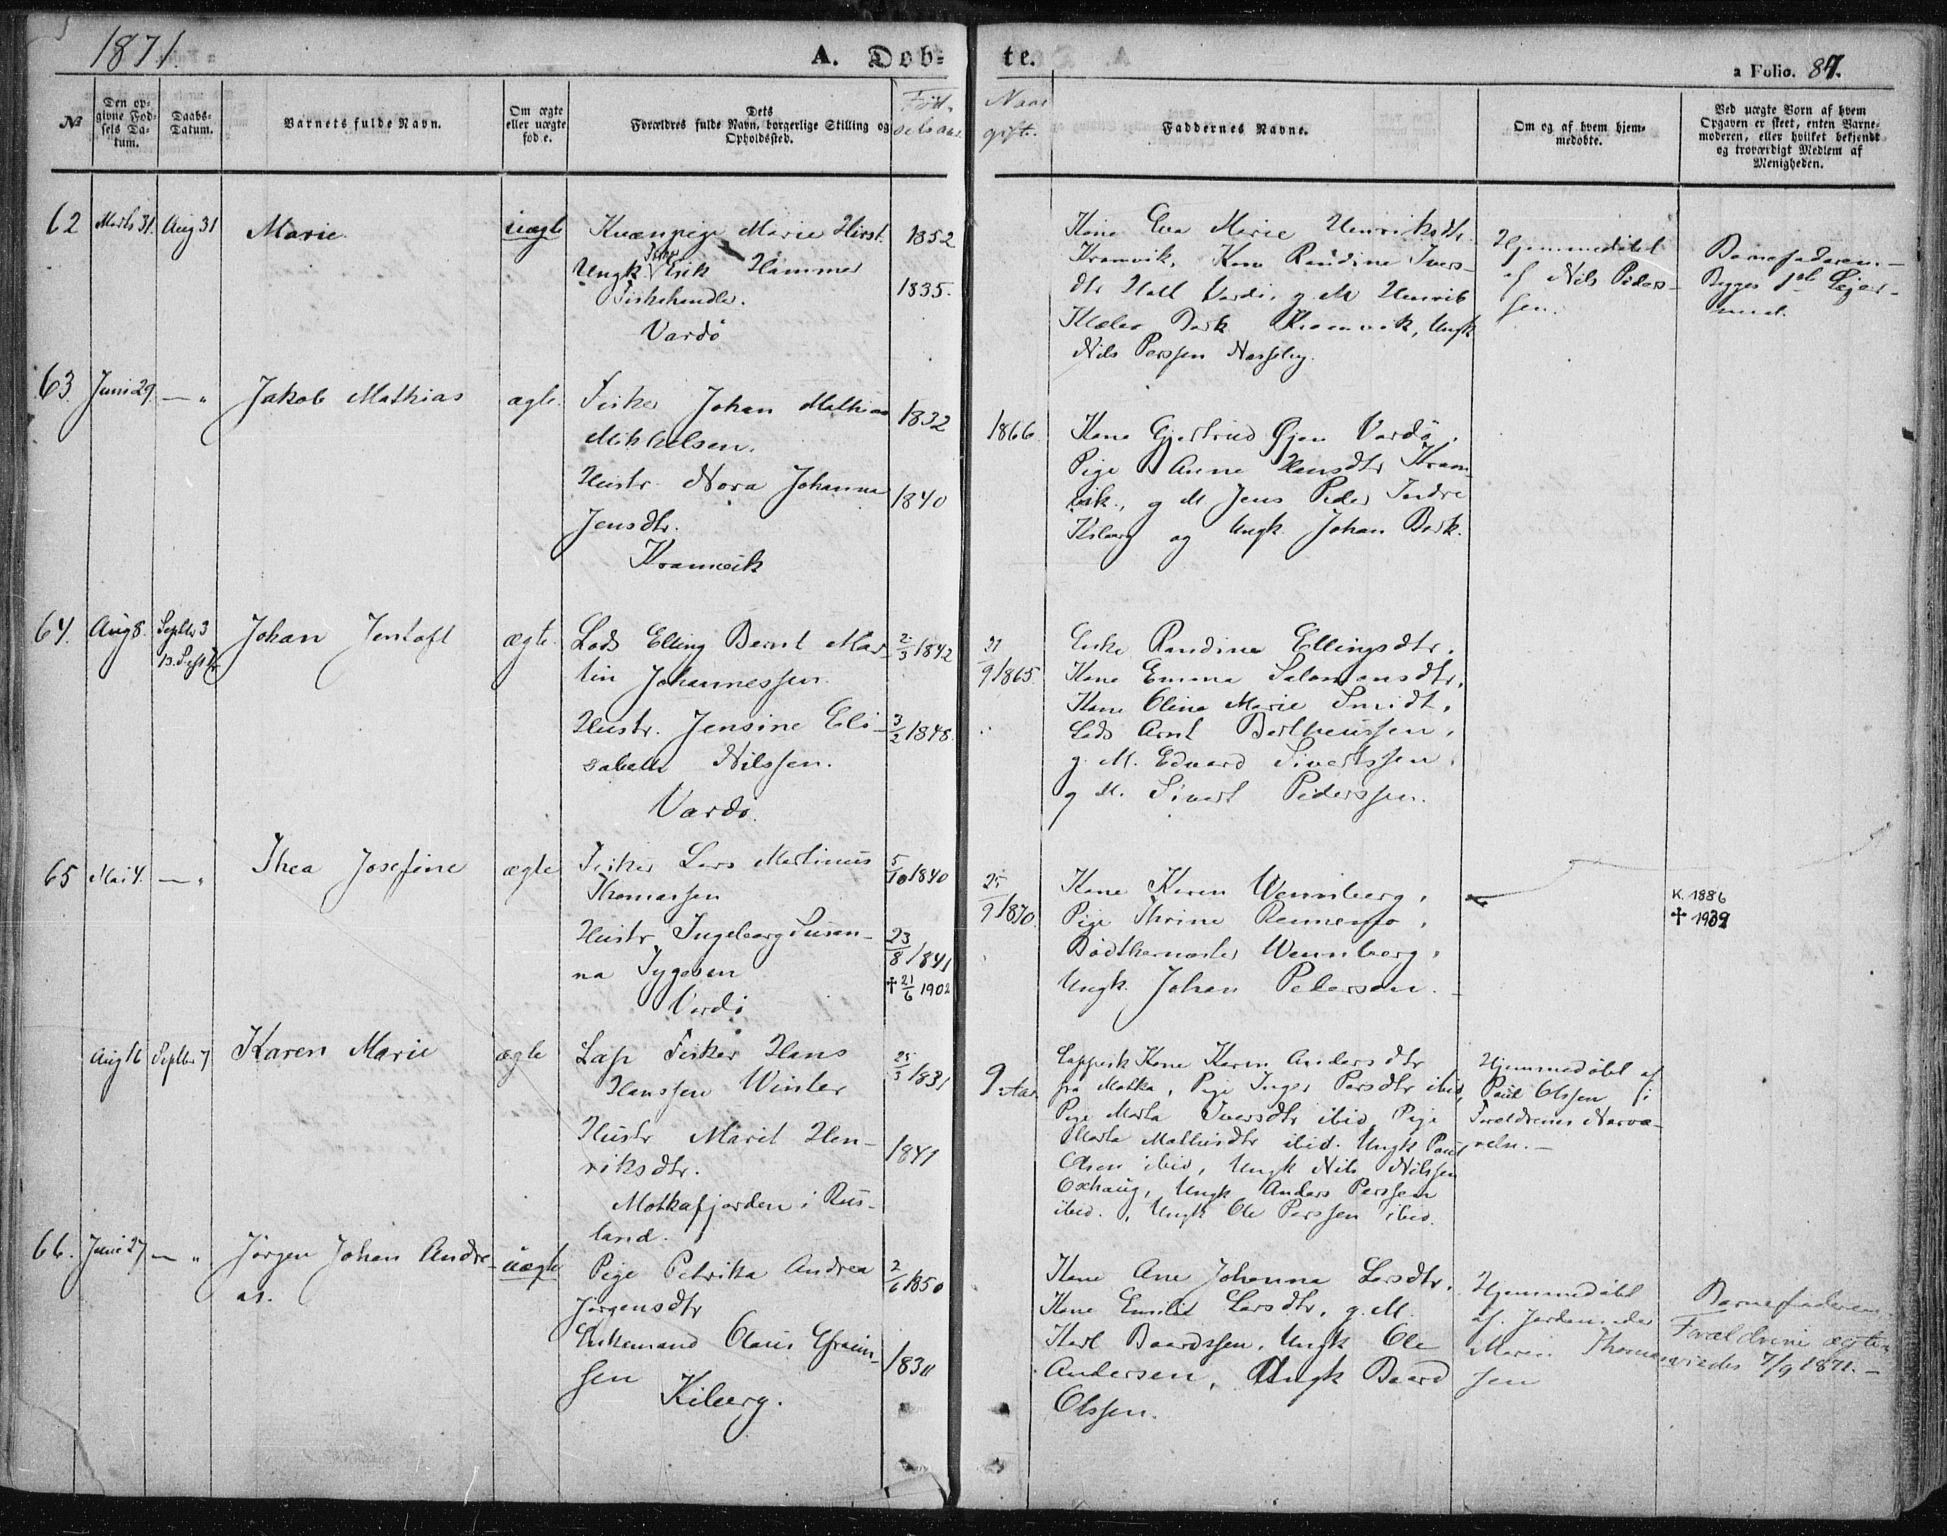 1871.
A. Dob-
te.
a Folio. 87.
№
Den op-
givne Fød-
sels Da-
tum.
Daabs-
Datum.
Barnets fulde Navn.
Om ægte
eller uægte
fød e.
Dets
Forældres fulde Navn, borgerlige Stilling og
Opholdssted.
Fød-
selsaar.
Naar
gift.
Faddernes Navne.
Om og af hvem hjem-
medøbte.
Ved uægte Børn af hvem
Opgaven er skeet, enten Barne-
moderen, eller hvilket bekjendt
og troværdigt Medlem af
Menigheden.
62 Marts 31. Aug 31 Marie uægte
Kvænpige Marie Hirst. 1852
Ungk Erik Hammer
Fiskehandler. 1835.
Vardø
Kone Eva Marie Henriksdtr.
Kramvik, Kone Randine Ivers-
dtr Hall Vardø, g M Henrik
Bark Kramvik, Ungk
Nils Perssen Nesseby.
Hjemmedøbt
af Nils Peders-
sen.
Barnefaderen.—
Begges 1st Leier-
maal.
63. Juni 29. — „ Jakob Mathias ægte.
Fisker Johan Mathias 1832
Mikkelsen.
Hustr. Nora Johanna 1840
Jensdtr.
Kramvik
1866.
Kone Gjertrud Øjen Vardø.
Pige Anne Hansdtr Kram-
vik., g M Jens Peder Indre
Kiberg og Ungk. Johan Bark.
64. Aug 8. Septbr 3 Johan Jentoft ægte.
Lods Elling Bernt Mar- 2/3 1842
tin Johannessen.
Hustr. Jensine Eli- 3/2 1848.
sabeth Nilssen.
Vardø.
21/9 1865.
Enke Randine Ellingsdtr.
Kone Emma Salomonsdtr,
Kone Oline Marie Smidt,
Lods Arnt Bertheussen,
g. M. Edvard Sivertssen,
g M. Sivert Pederssen.
65 Mai 4. — „ Thea Josefine ægte
Fisker Lars Martinus 5/10 1840
Thomassen
Hustr Ingeborg Susan- 23/8 1841
na Tygesen † 21/6 1902
Vardø
25/9 1870.
Kone Karen Wennberg,
Pige Thrine
Bødtkermester Wennberg,
Ungk. Johan Pedersen.
K. 1886
† 1939
Aug 16 Septbr 7 Karen Marie ægte
Lap Fisker Hans 25/3 1831
Hanssen Winter
Hustr Marit Hen- 1841
riksdtr.
Motkafjorden i Rus-
land.
9 Aar
Lappisk Kone Karen Andersdtr
fra Motka, Pige Inger Persdtr ibid,
Pige Marta Iversdtr ibid, Pige
Marta Mathisdtr ibid. Ungk Paul
Olsen ibid, Ungk Nils Nilssen
Oxhaug, Ungk Anders Perssen
ibid., Ungk Ole Perssen ibid.
Hjemmedøbt af
Paul Olssen i
Forældrenes Nærvæ-
relse.—
66. Juni 27 — „ Jørgen Johan Andre- uægte
as.
Pige Petrikka Andrea 2/6 1850
Jørgensdtr
Enkemand Olaus Efraim- 1830
sen
Kiberg.
Kone Ane Johanna Larsdtr,
Kone Emilie Larsdtr, g. M.
Karl Baardssen, Ungk Ole
Andersen, Ungk Baard
Olssen.
Hjemmedøbt
af. Jordemoder
Maren Thomas-
sen
Barnefaderen.
Forældrene ægte-
viedes 7/9 1871.—